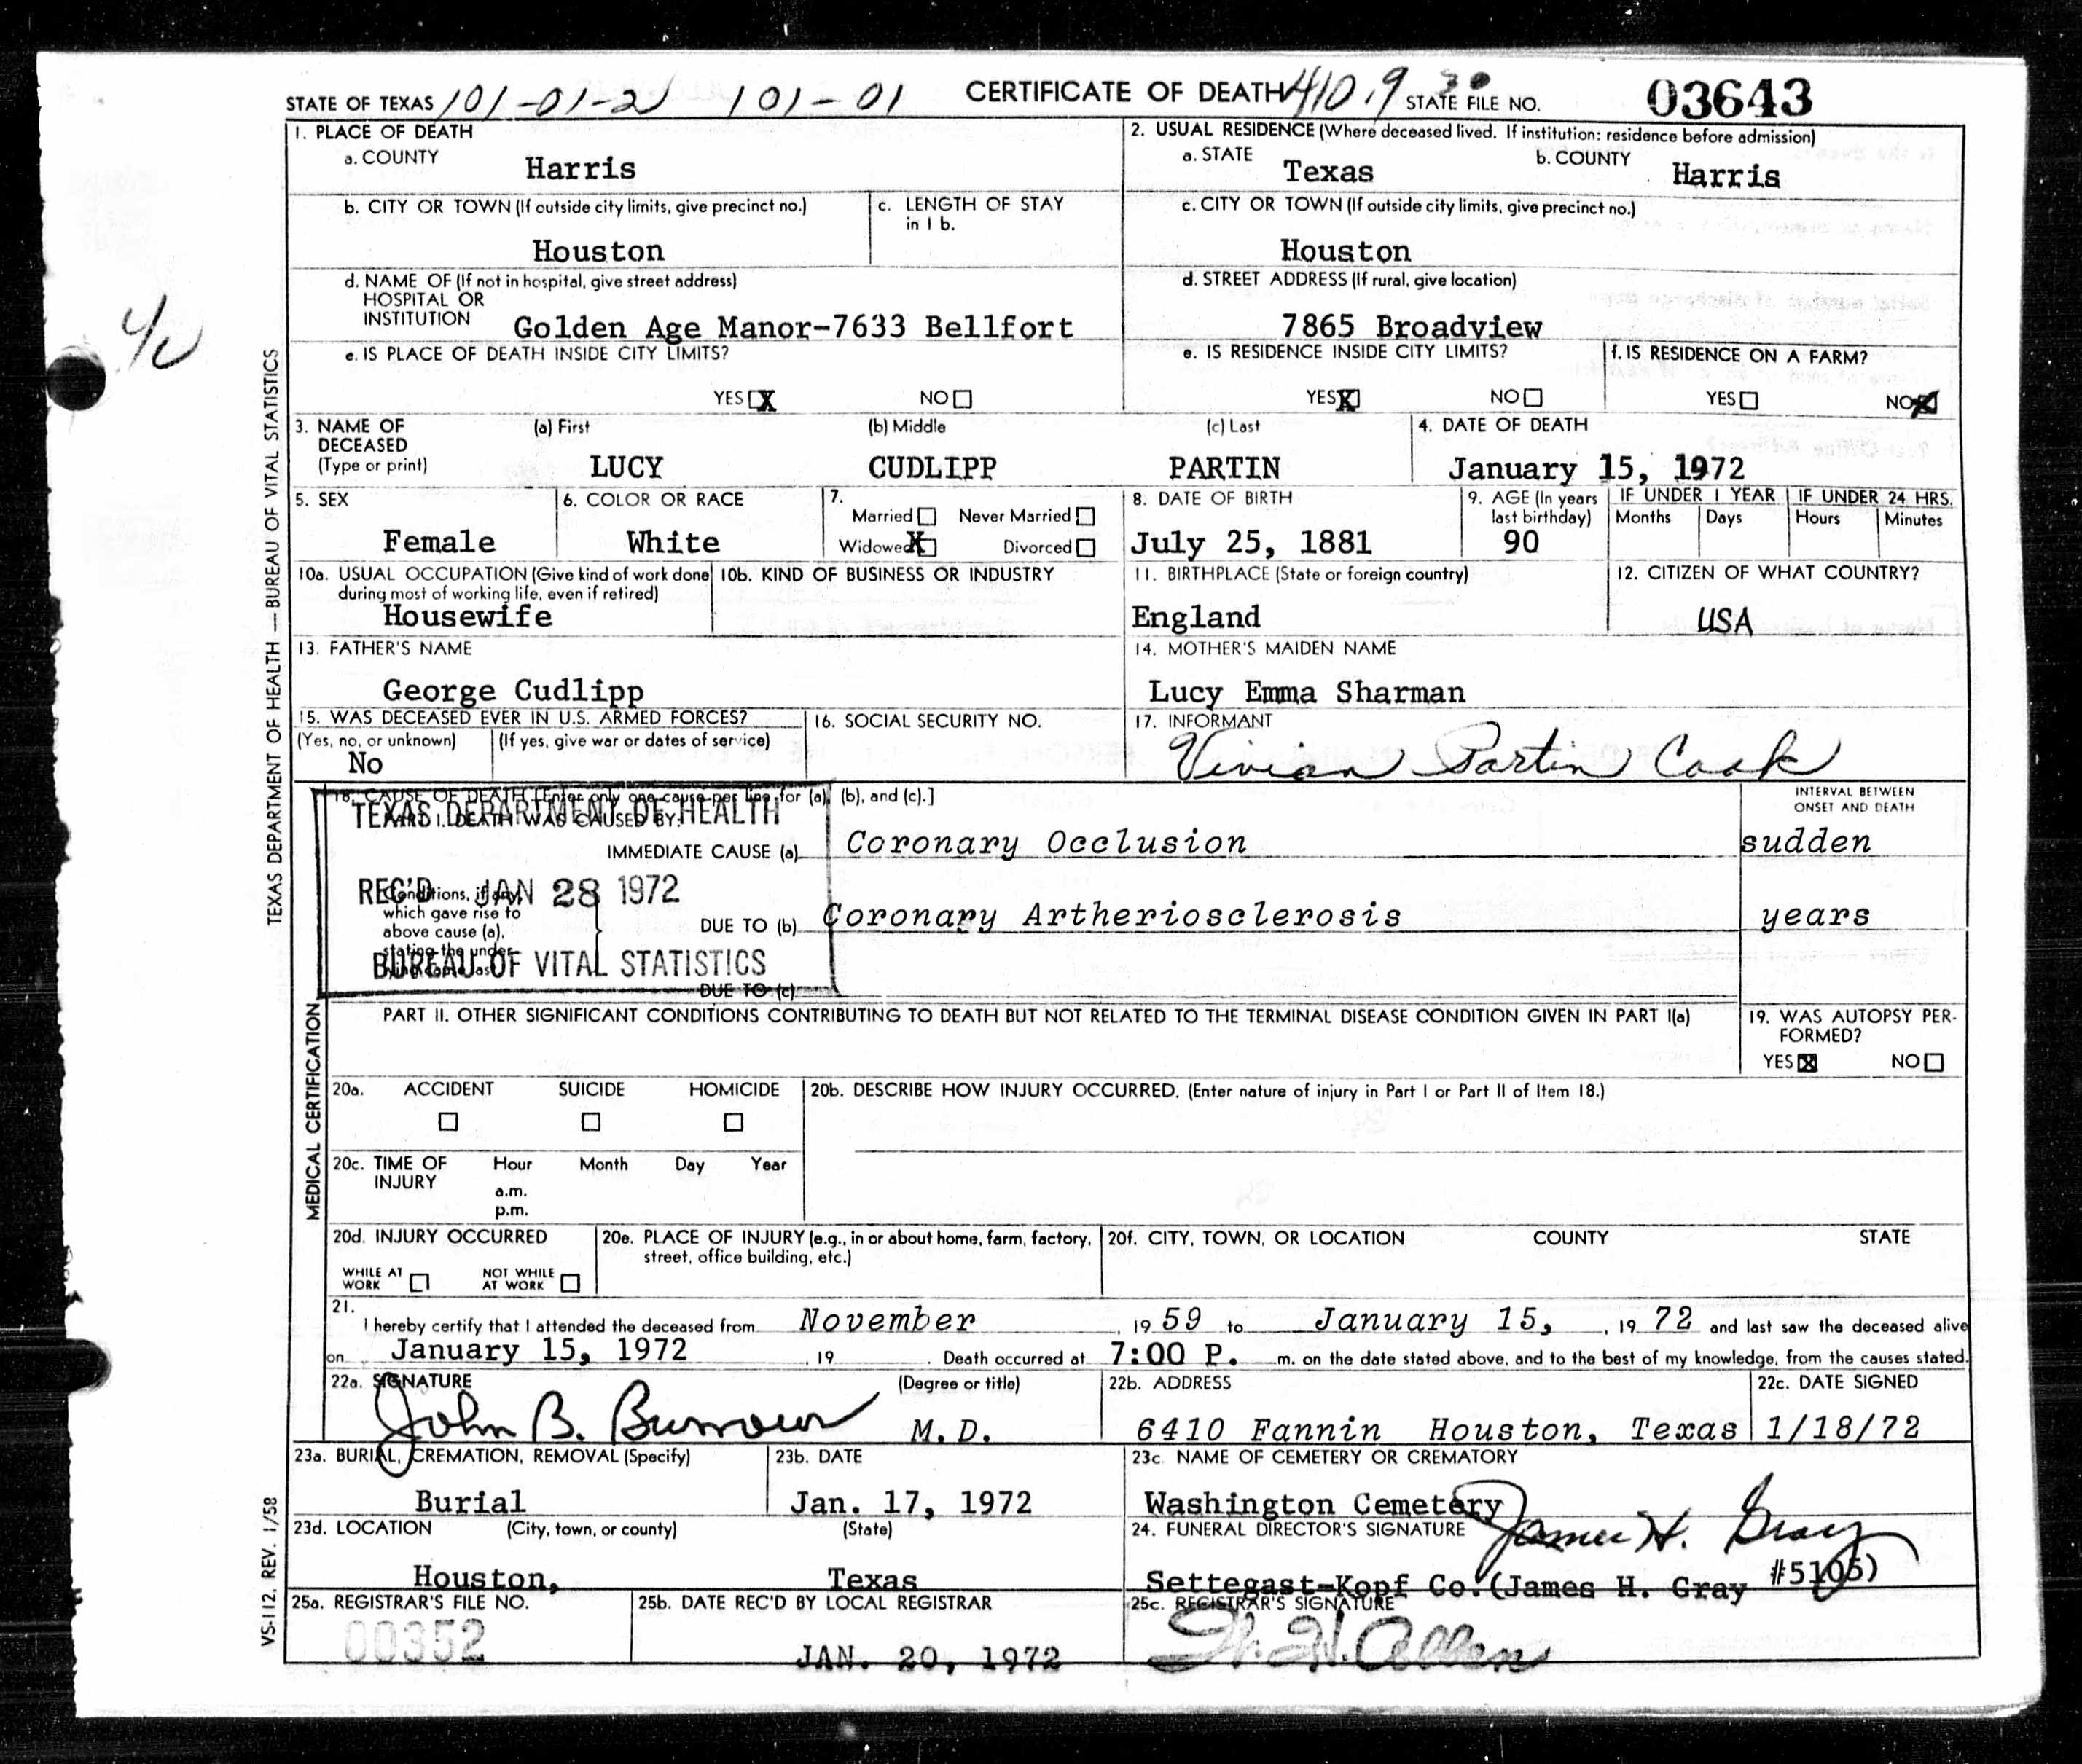 STATE OF TEXAS 101-01-2 101-01 CERTIFICATE OF DEATH 410.9 STATE FILE NO. 03643
1. PLACE OF DEATH
a. COUNTY
Harris
2. USUAL RESIDENCE (Where deceased lived. If institution: residence before admission)
a. STATE b. COUNTY
Texas Harris
b. CITY OR TOWN (If outside city limits, give precinct no.)
Houston
c. LENGTH OF STAY
in 1 b.
c. CITY OR TOWN (If outside city limits, give precinct no.)
Houston
d. NAME OF (If not in hospital, give street address)
HOSPITAL OR
INSTITUTION Golden Age Manor-7633 Bellfort
d. STREET ADDRESS (If rural, give location)
7865 Broadview
e. IS PLACE OF DEATH INSIDE CITY LIMITS?
YES X NO
e. IS RESIDENCE INSIDE CITY LIMITS?
YES X NO
f. IS RESIDENCE ON A FARM?
YES NO X
3. NAME OF
DECEASED
(Type or print)
(a) First (b) Middle (c) Last
LUCY CUDLIPP PARTIN
4. DATE OF DEATH
January 15, 1972
5. SEX
Female
6. COLOR OR RACE
White
7.
Married Never Married
Widowed X Divorced
8. DATE OF BIRTH
July 25, 1881
9. AGE (In years
last birthday)
90
IF UNDER 1 YEAR
Months Days
IF UNDER 24 HRS.
Hours Minutes
10a. USUAL OCCUPATION (Give kind of work done
during most of working life, even if retired)
Housewife
10b. KIND OF BUSINESS OR INDUSTRY
11. BIRTHPLACE (State or foreign country)
England
12. CITIZEN OF WHAT COUNTRY?
USA
13. FATHER'S NAME
George Cudlipp
14. MOTHER'S MAIDEN NAME
Lucy Emma Sharman
15. WAS DECEASED EVER IN U.S. ARMED FORCES?
(Yes, no, or unknown) (If yes, give war or dates of service)
No
16. SOCIAL SECURITY NO.
17. INFORMANT
Vivian Partin Cook
18. CAUSE OF DEATH [Enter only one cause per line for (a), (b), and (c).]
PART I. DEATH WAS CAUSED BY:
IMMEDIATE CAUSE (a) Coronary Occlusion
INTERVAL BETWEEN
ONSET AND DEATH
sudden
Conditions, if any,
which gave rise to
above cause (a),
stating the under-
lying cause last
DUE TO (b) Coronary Artheriosclerosis years
DUE TO (c)
TEXAS DEPARTMENT OF HEALTH
REC'D JAN 28 1972
BUREAU OF VITAL STATISTICS
PART II. OTHER SIGNIFICANT CONDITIONS CONTRIBUTING TO DEATH BUT NOT RELATED TO THE TERMINAL DISEASE CONDITION GIVEN IN PART I(a)
19. WAS AUTOPSY PER-
FORMED?
YES X NO
20a. ACCIDENT SUICIDE HOMICIDE
20b. DESCRIBE HOW INJURY OCCURRED. (Enter nature of injury in Part I or Part II of Item 18.)
20c. TIME OF
INJURY
Hour Month Day Year
a.m.
p.m.
20d. INJURY OCCURRED
WHILE AT
WORK
NOT WHILE
AT WORK
20e. PLACE OF INJURY (e.g., in or about home, farm, factory,
street, office building, etc.)
20f. CITY, TOWN, OR LOCATION COUNTY STATE
21.
I hereby certify that I attended the deceased from November , 19 59 to January 15, , 19 72 and last saw the deceased alive
on January 15, 1972 , 19 . Death occurred at 7:00 P. m. on the date stated above, and to the best of my knowledge, from the causes stated.
22a. SIGNATURE (Degree or title)
John B. Burrows M.D.
22b. ADDRESS
6410 Fannin Houston, Texas
22c. DATE SIGNED
1/18/72
23a. BURIAL, CREMATION, REMOVAL (Specify)
Burial
23b. DATE
Jan. 17, 1972
23c. NAME OF CEMETERY OR CREMATORY
Washington Cemetery
23d. LOCATION (City, town, or county) (State)
Houston, Texas
24. FUNERAL DIRECTOR'S SIGNATURE James H. Gray
Settegast-Kopf Co. (James H. Gray #5105)
25a. REGISTRAR'S FILE NO.
00352
25b. DATE REC'D BY LOCAL REGISTRAR
JAN. 20, 1972
25c. REGISTRAR'S SIGNATURE
W. H. Allen
TEXAS DEPARTMENT OF HEALTH — BUREAU OF VITAL STATISTICS
MEDICAL CERTIFICATION
VS-112. REV. 1/58